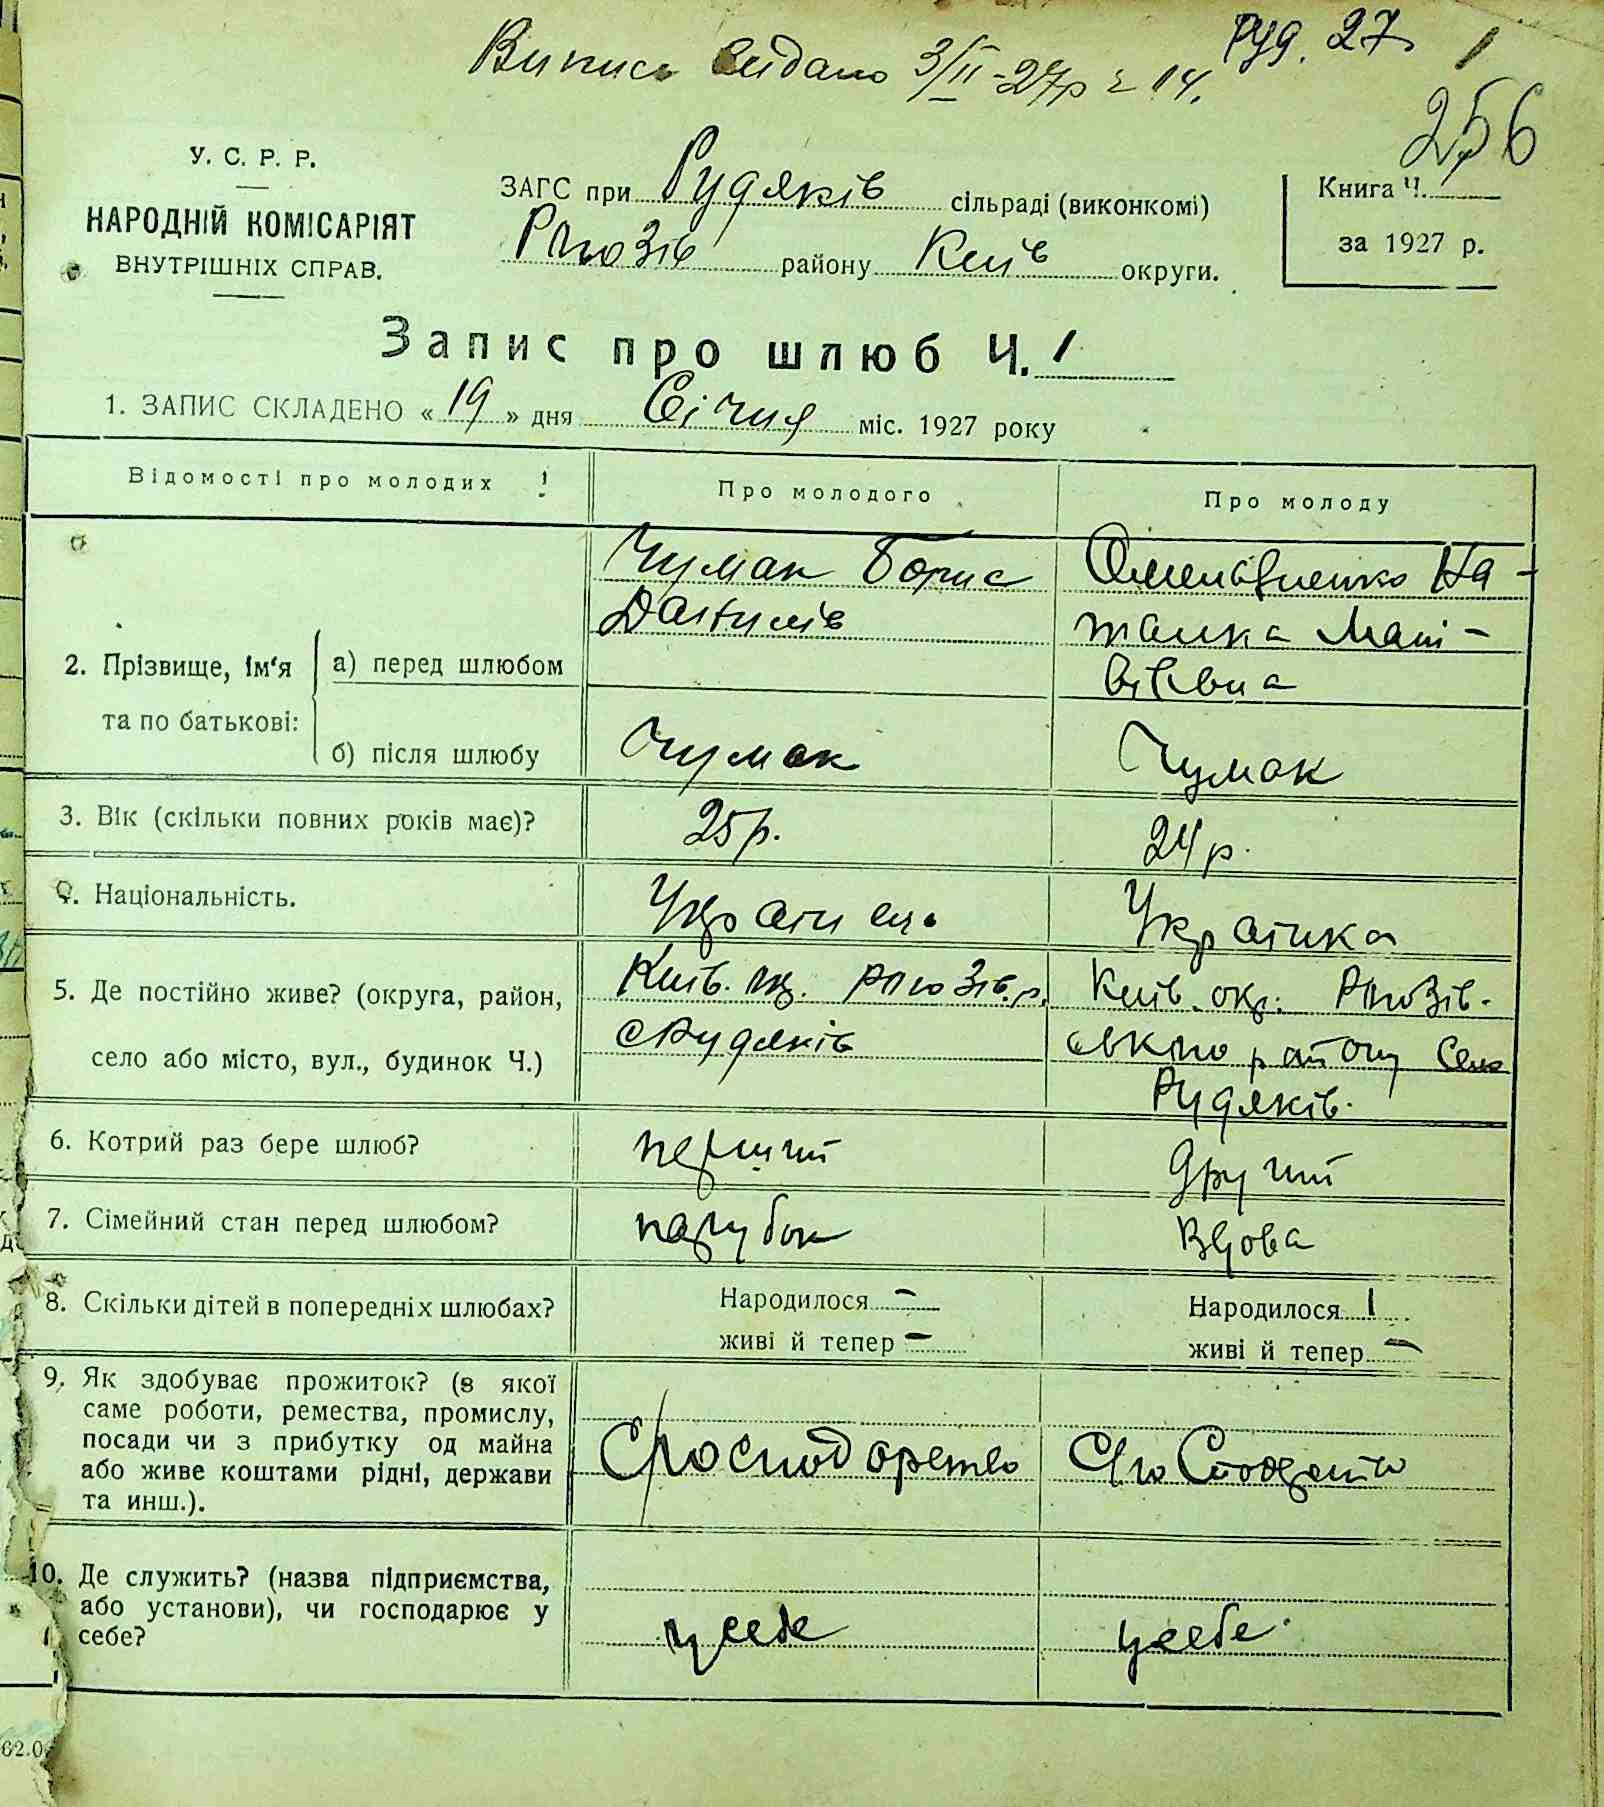 Руд. 27. 1
Випис видано 3/II-27р ч 14.
256
У. С. Р. Р.
НАРОДНІЙ КОМІСАРІЯТ
ВНУТРІШНІХ СПРАВ.
ЗАГС при Рудяків сільраді (виконкомі)
Ргозів району Київ округи.
Книга Ч.
за 1927 р.
Запис про шлюб Ч. 1
1. ЗАПИС СКЛАДЕНО « 19 » дня Січня міс. 1927 року
Відомості про молодих
Про молодого
Про молоду
2. Прізвище, ім'я та по батькові:
а) перед шлюбом
Чумак Борис
Данилів
Омельяненко На-
талка Маті-
ївна
б) після шлюбу
Чумак
Чумак
3. Вік (скільки повних років має)?
25р.
24р.
4. Національність.
Украінець
Украінка
5. Де постійно живе? (округа, район,
село або місто, вул., будинок Ч.)
Київ. окр. Ргозів. р.
с Рудяків
Київ. окр. Ргозів-
ського району село
Рудяків.
6. Котрий раз бере шлюб?
перший
другий
7. Сімейний стан перед шлюбом?
парубок
Вдова
8. Скільки дітей в попередніх шлюбах?
Народилося –
живі й тепер –
Народилося 1
живі й тепер –
9. Як здобуває прожиток? (з якої
саме роботи, ремества, промислу,
посади чи з прибутку од майна
або живе коштами рідні, держави
та инш.).
С/господарство
С/господарство
10. Де служить? (назва підприємства,
або установи), чи господарює у
себе?
у себе
у себе